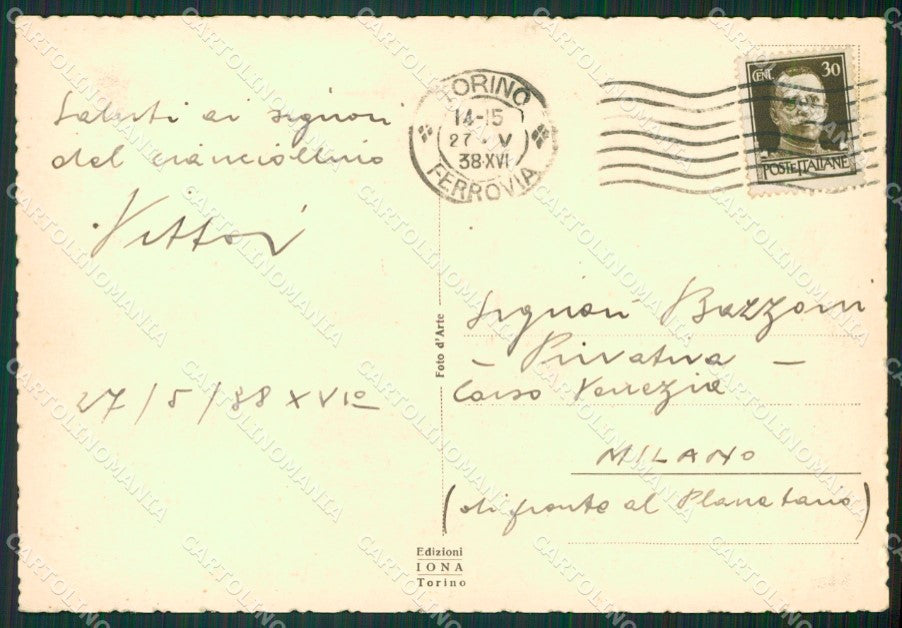 Saluti ai signori
del cianciollino
Vittori
27/5/38 XVIº
TORINO
14-15
27 · V
38·XVI
FERROVIA
CENT. 30
POSTE ITALIANE
Foto d'Arte
Signori Bazzoni
- Privativa -
Corso Venezia
MILANO
(di fronte al Planetario)
Edizioni
IONA
Torino
CARTOLINOMANIA